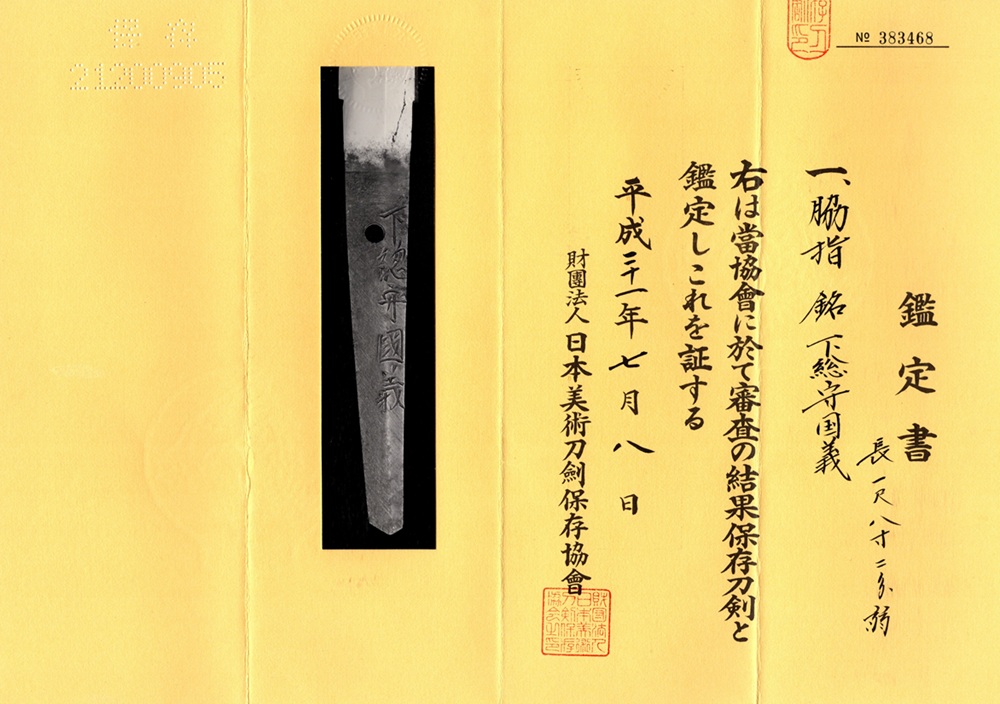 № 383468
鑑定書
一、脇指 銘 下総守国義
長一尺八寸二分弱
右は當協會に於て審査の結果保存刀剣と
鑑定しこれを証する
平成二十一年七月八日
財團法人日本美術刀劍保存協會
下總守國義
保存
21200905